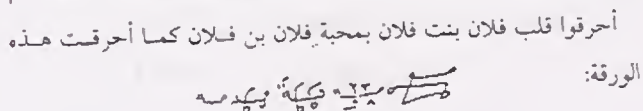 أحرقوا قلب فلان بنت فلان بمحبة فلان بن فلان كما أحرقت هذه
الورقة: